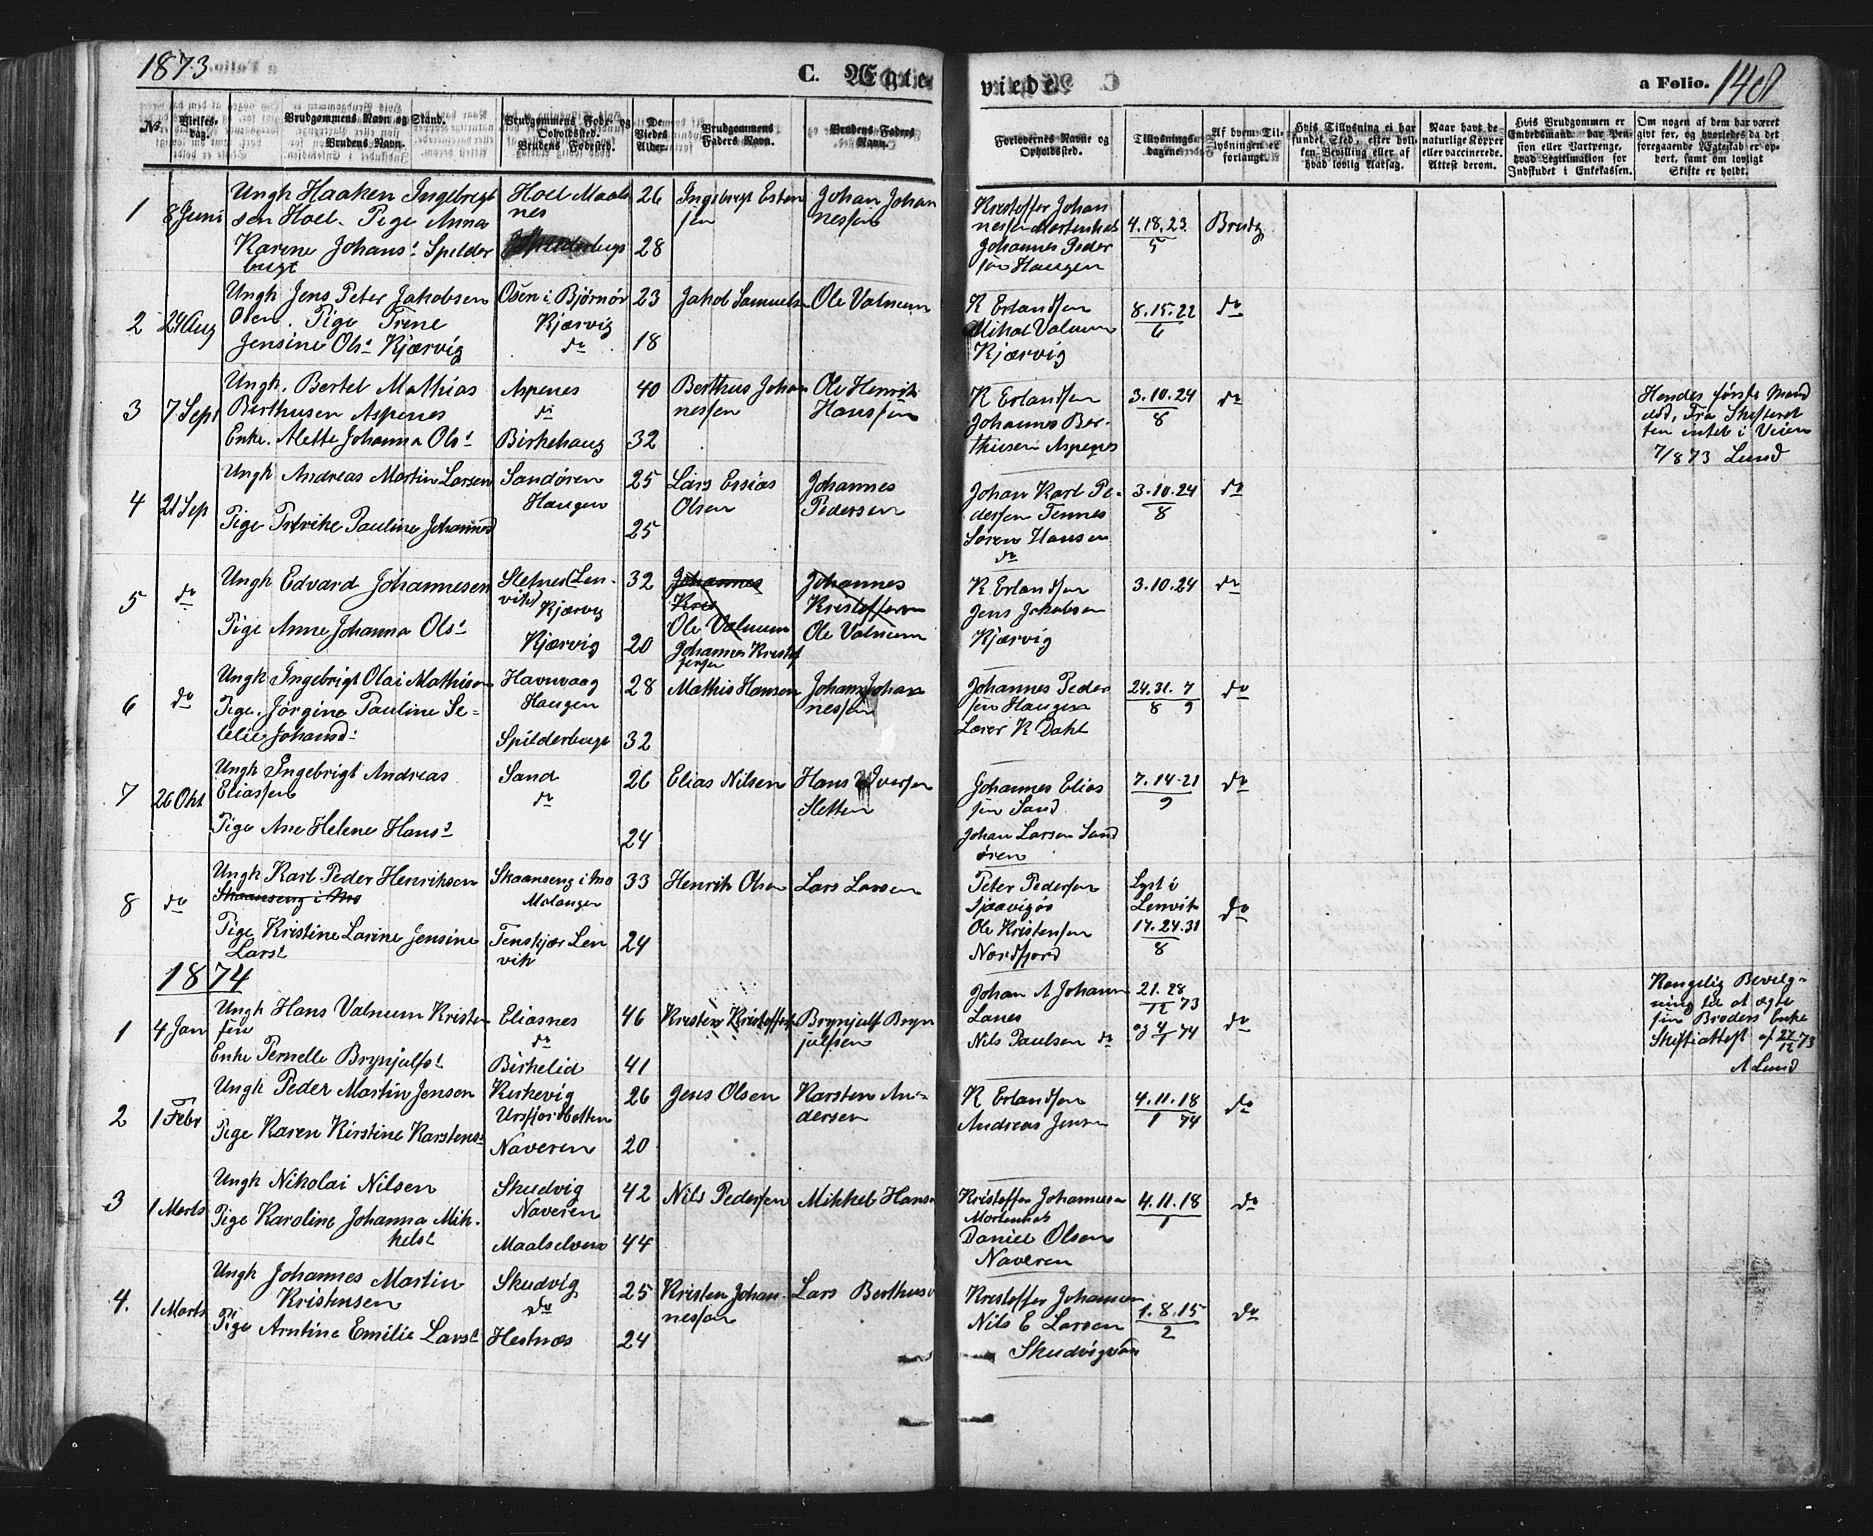 1873
C. Ægte
viede.
a Folio. 140
No.
Vielses-
dag.
Brudgommens Navn og Stand.
Brudens Navn.
Brudgommens Føde- og
Opholdssted.
Brudens Fødested.
De
Viedes
Alder.
Brudgommens
Faders Navn.
Brudens Faders
Navn.
Forlovernes Navne og
Opholdssted.
Tillysnings-
dagene.
Af hvem Til-
lysningen er
forlangt.
Hvis Tillysning ei har
fundet Sted, efter hvil-
ken Bevilling eller af
hvad lovlig Aarsag.
Naar havt de
naturlige Kopper
eller vaccinerede.
Attest derom.
Hvis Brudgommen er
Embedsmand, har Pen-
sion eller Vartpenge,
hvad Legitimation for
Indskudet i Enkekassen.
Om nogen af dem har været
givt før, og hvorledes da det
foregaaende Ægteskab er op-
hørt, samt om lovligt
Skifte er holdt.
1 8 Juni
Ungk Haaken Ingebrigt
sen Hoel. Pige Anna
Karine Johans: Spilder
bugt
Hoel Maals
nes
26
28
Ingebrigt Esten
sen
Johan Johan
nessen
Kristoffer Johan
nessen Mortenhals
Johannes Peder
sen Haugen
4.18.23
5
Brudg
2 24 Aug
Ungk Jens Peter Jakobsen
Osen. Pige Trine
Jensine Ols: Kjærvig
Osen i Bjørnør
Kjærvig
do
23
18
Jakob Samuelsen
Ole Valnum
K Erlandsen
Mikal Valnum
Kjærvig
8.15.22
6
do
3 7 Sept
Ungk. Bertel Mathias
Berthusen Aspenes
Enke. Alette Johanna Ols:
Aspenes
do
Birkehaug
40
32
Berthus Johan
nessen
Ole Henrik
Hanssen
K Erlandsen
Johannes Ber-
thusen Aspenes
3.10.24
8
do
Hendes første Mand
død. Fra Skifteret
ten intet i Veien
7/8 73 Lund
4 21 Sep
Ungk Andreas Martin Larsen
Pige Fredrike Pauline Johannesd
Sandøren
Haugen
25
25
Lars Essias
Olsen
Johannes
Pedersen
Johan Karl Pe-
dersen Tennes
Søren Hansen
do
3.10.24
8
do
5 do
Ungk Edvard Johannesen
Pige Anne Johanna Ols:
Sletnes (Len-
vik)
Kjærvig
Kjærvig
32
20
Johannes
Kris
Ole Valnum
Johannes Kristof
fersen
Johannes
Kristoffersen
Ole Valnum
K Erlandsen
Jens Jakobsen
Kjærvig
3.10.24
do
6 do
Ungk Ingebrigt Olai Mathisen
Pige. Jørgine Pauline Se-
celie Johansd:
Havnvaag
Haugen
Spilderbugt
28
32
Mathis Hansen
Johan Johan
nessen
Johannes Peder
sen Haugen
Lærer K Dahl
24.31. 7
8 9
do
7 26 Okt
Ungk Ingebrigt Andreas
Eliassen
Pige Ane Helene Hans:
Sand
do
26
24
Elias Nilsen
Hans Iversen
Sletten
Johannes Elias
sen Sand
Johan Larsen Sand
øren
7.14.21
9
do
8 do
Ungk Karl Peder Henriksen
Skaanseng i Mo
Pige Kristine Larine Jensine
Lars:
Skaanseng i Mo
Malangen
Tenskjær Len
vik
33
24
Henrik Olsen
Lars Larsen
Peter Pedersen
Sjaavigør
Ole Kristensen
Nordfjord
Lyst i
Lenvik
17.24.31
8
do
1874
1 4 Jan
Ungk Hans Valnum Kristen
sen
Enke Pernelle Brynjulfs:
Eliasnes
do
Birkelid
46
41
Kristen Kristoffersen
Brynjulf Bryn
julfsen
Johan A Johann
Lanes
Nils Paulsen do
21.28
12 73
og 4/1 74
do
Kongelig Bevilg-
ning til at ægte
sin Broders Enke
Skifteattest af 27/12 73
A Lund
2 1 Febr
Ungk Peder Martin Jensen
Pige Karen Kirstine Karstens:
Kirkevig
Ursfjordbotten
Naveren
26
20
Jens Olsen
Karsten An-
dersen
K Erlandsen
Andreas Jensen
4.11.18
1 74
do
3 1 Marts
Ungk Nikolai Nilsen
Pige Karoline Johanna Mik-
kels:
Skudvig
Naveren
Maalselven
42
44
Nils Pedersen
Mikkel Hansen
Kristoffer Johannesen
Mortenhals
Daniel Olsen
Naveren
4.11.18
1
do
4. 1 Marts
Ungk Johannes Martin
Kristensen
Pige Arntine Emilie Lars:
Skudvig
do
Hestnæs
25
24
Kristen Johan-
nessen
Lars Berthus
Kristoffer Johansen
Nils E Larsen
Skudvigvan
1.8.15
2
do